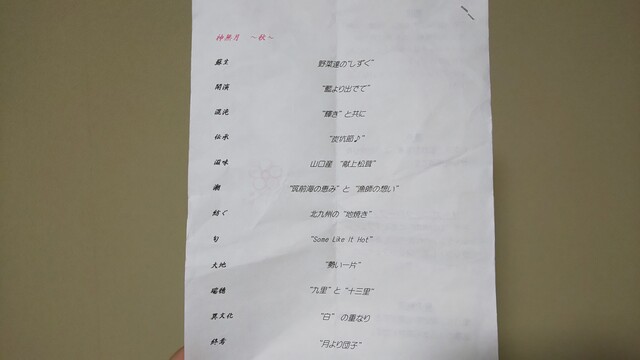 神無月 ～秋～
蘇生 野菜達の“しずく”
開演 “藍より出でて”
混沌 “輝き”と共に
伝承 “炭坑節♪”
滋味 山口産 “献上松茸”
潮 “筑前海の恵み”と“漁師の想い”
紡ぐ 北九州の“地焼き”
旬 “Some Like It Hot”
大地 “熱い一片”
瑞穂 “九里”と“十三里”
異文化 “白” の重なり
終宴 “月より団子”